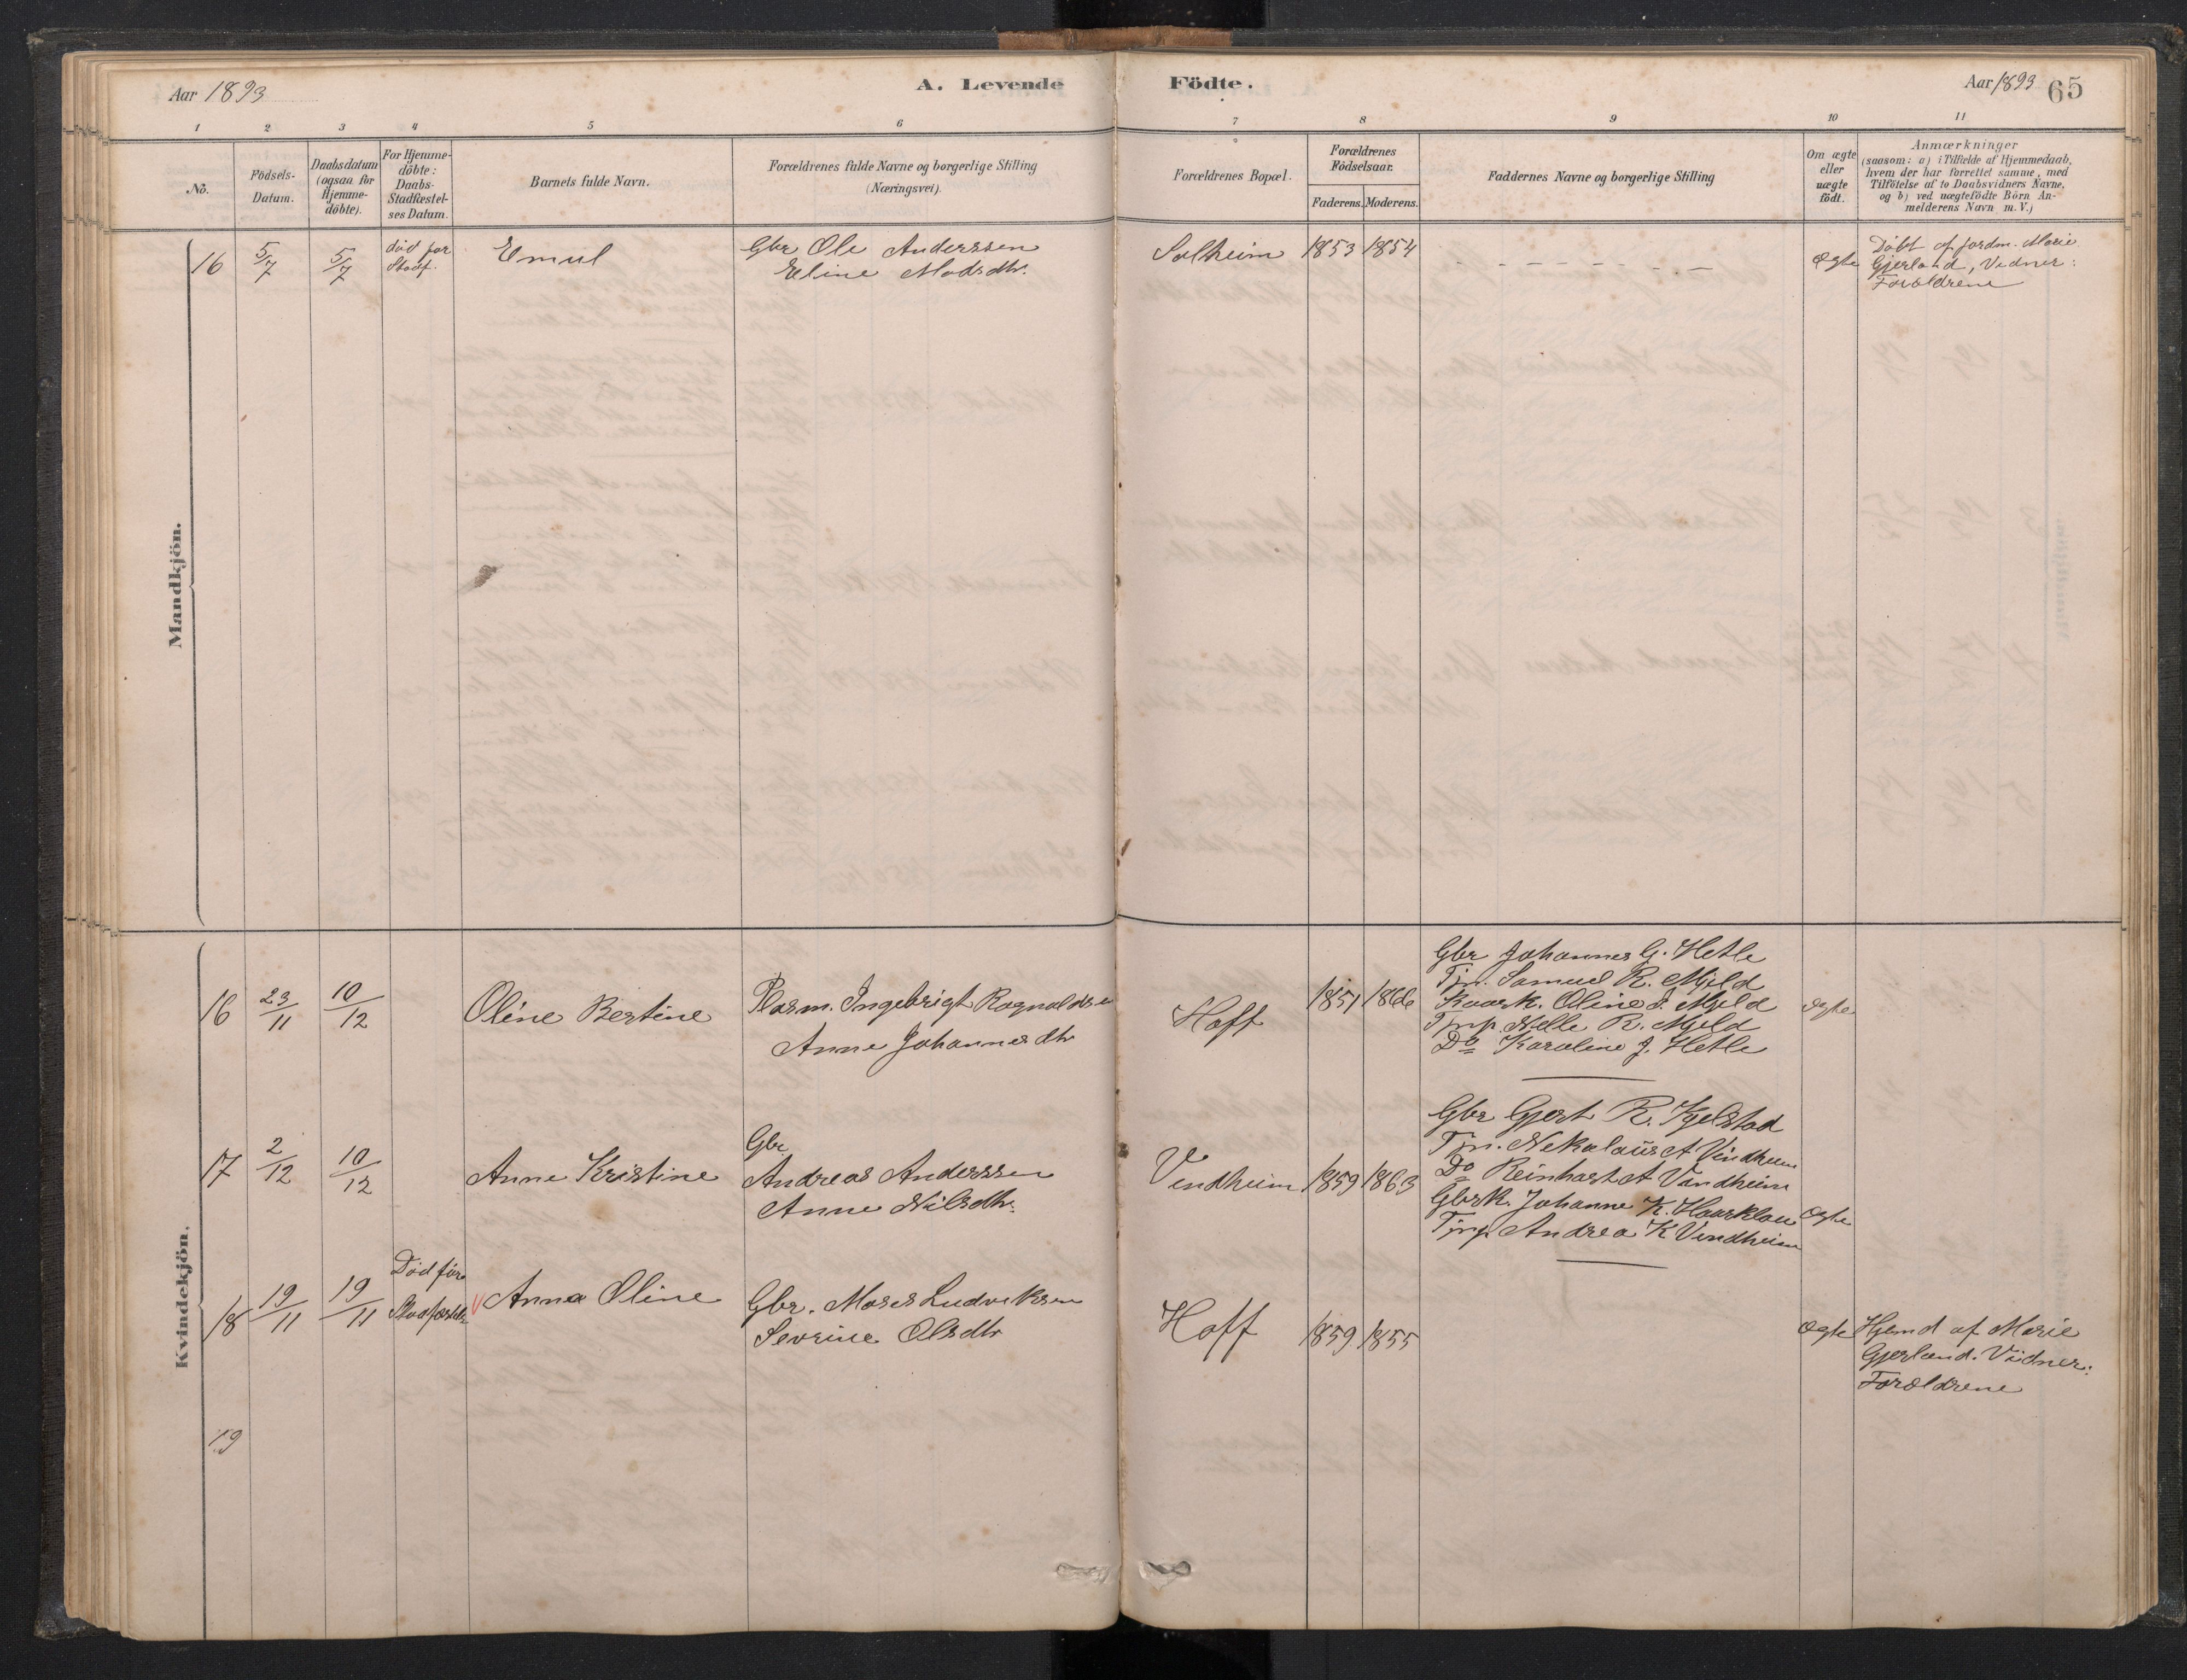 Aar 1893
A. Levende
Födte.
Aar 1893
65
1 2 3 4 5 6 7 8 9 10 11
No.
Födsels-
Datum.
Daabsdatum
(ogsaa for
Hjemme-
döbte).
For Hjemme-
döbte:
Daabs-
Stadfæstel-
ses Datum.
Barnets fulde Navn.
Forældrenes fulde Navne og borgerlige Stilling
(Næringsvei).
Forældrenes Bopæl.
Forældrenes
Födselsaar.
Faderens. Moderens.
Faddernes Navne og borgerlige Stilling
Om ægte
eller
uægte
födt.
Anmærkninger
(saasom: a) i Tilfælde af Hjemmedaab,
hvem der har forrettet samme, med
Tilföielse af to Daabsvidners Navne,
og b) ved uægtefödte Börn An-
melderens Navn m. V.)
Mandkjön.
16
5/7
5/7
död för
Stadf.
Emul
Gbr Ole Anderssen
Eline Madsdtr.
Solheim
1853 1854
- - - - - - - -
Ægte
Döbt af jordm. Marie
Gjerland, Vidner:
Forældrene
Kvindekjön.
16
23/11
10/12
Oline Bertine
Plasm. Ingebrigt Ragnaldsen
Anne Johannesdtr
Hoff
1851 1866
Gbr Johannes G. Hetle
Tjm. Samuel R. Mjeld
Kaark. Oline J. Mjeld
Tjnp. Nelle R. Mjeld
Do Karoline J. Hetle
ægte
17
2/12
10/12
Anne Kristine
Gbr
Andreas Anderssen
Anne Nilsdtr.
Vindheim
1859 1863
Gbr Gjert R. Kjelstad
Tjm. Nekolaus A Vindheim
Do Reinhart A Vindheim
Gbrk. Johanne K. Haarklau
Tjnp. Andrea K Vindheim
Ægte
18
19/11
19/11
Död för
Stadfæstels
V Anna Oline
Gbr. Moses Ludviksen
Sevrine Olsdtr
Hoff
1859 1855
Ægte
Hjemd af Marie
Gjerland. Vidner:
Forældrene
19